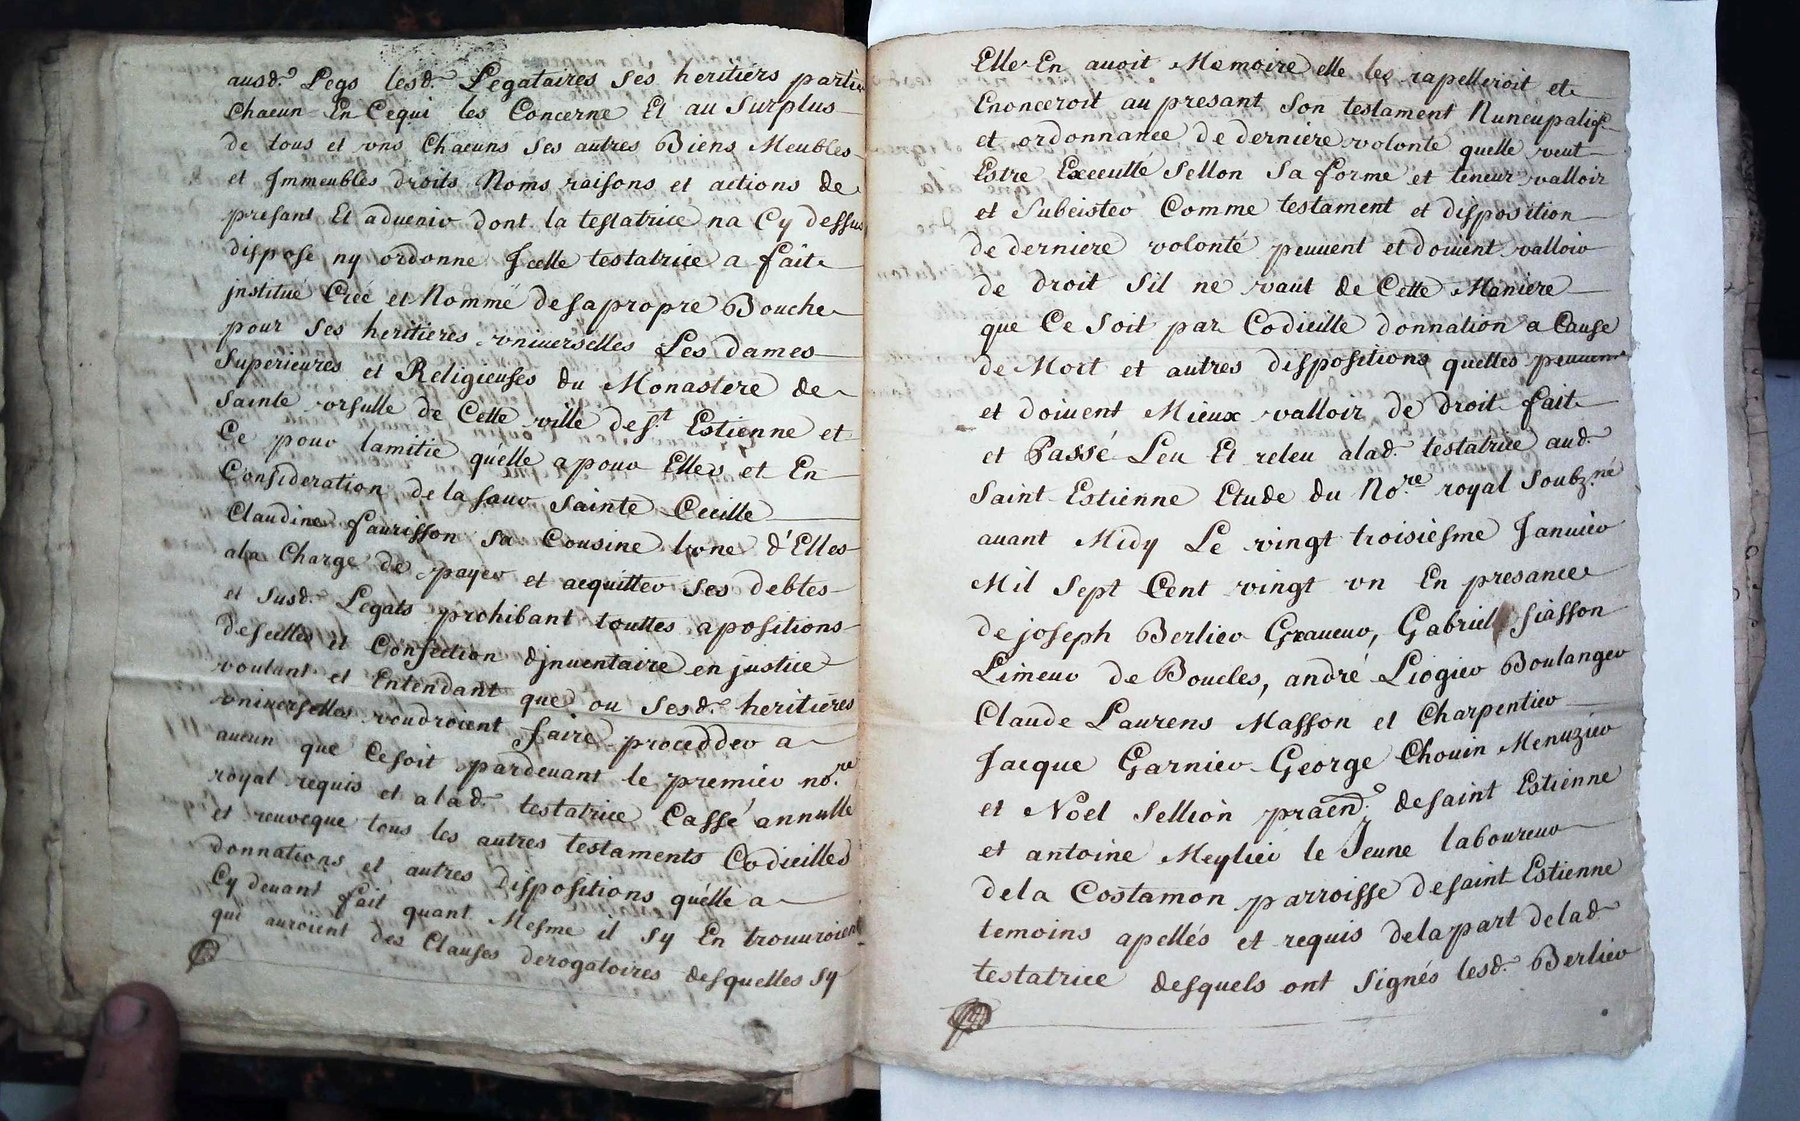 ausd. Legs lesd. Legataires ses heritiers partie
Chacun En Cequi les Concerne Et au Surplus
de tous et vns Chacuns ses autres Biens Meubles
et Jmmeubles droits Noms raisons et actions de
presant Et aduenir dont la testatrice na Cy dessus
dispose ny ordonne Jcelle testatrice a fait
jnstitué Créé et Nommé desapropre Bouche
pour ses heritieres vniuerselles Les Dames
Superieures et Religieuses du Monastere de
Sainte vrsulle de Cette ville deSt. Estienne et
Ce pour lamitié quélle apour Elles et En
Consideration dela sœur Sainte Cecille
Claudine faurisson Sa Cousine lvne d'Elles
ala Charge de payer et acquitter ses debtes
et susd. Legats prohibant touttes apositions
descelles et Confection djnuentaire en justice
voulant et Entendant que ou Sesd. heritieres
vniuerselles voudroient faire procedder a
aucun que Cesoit pardeuant le premier no.re
royal requis et alad. testatrice Cassé annullé
et reuoque tous les autres testaments Codicilles
donnations et autres Dispositions quélle a
Cy deuant fait quant Mesme il sy En trouuroient
qui auroient des Clauses derogatoires desquelles sy
Elle En auoit Memoire elle les rapelleroit et
Enonceroit au presant Son testament Nuncupatif
et ordonnance de derniere volonté quelle veut
Estre Executté Sellon Sa forme et teneur valloir
et Subcister Comme testament et disposition
de derniere volonté peuuent et doiuent valloir
de droit Sil ne vaut de Cette Maniere
que Ce Soit par Codicille donnation a Cause
de Mort et autres dispositions quelles peuuent
et doiuent Mieux valloir de droit fait
et Passé Leu Et releu alad. testatrice aud.
Saint Estienne Etude du No.re royal Soubz.né
auant Midy Le vingt troisiesme Januier
Mil Sept Cent vingt vn En presance
de joseph Berlier Graueur, Gabriel Siasson
Limeur de Boucles, andré Liogier Boulanger
Claude Laurens Masson et Charpentier
Jacque Garnier George Chouin Menuzier
et Noel Sellion praen. desaint Estienne
et antoine Meylier le Jeune laboureur
dela Costamon parroisse desaint Estienne
temoins apellés et requis delapart delad.
testatrice desquels ont Signés lesd. Berlier